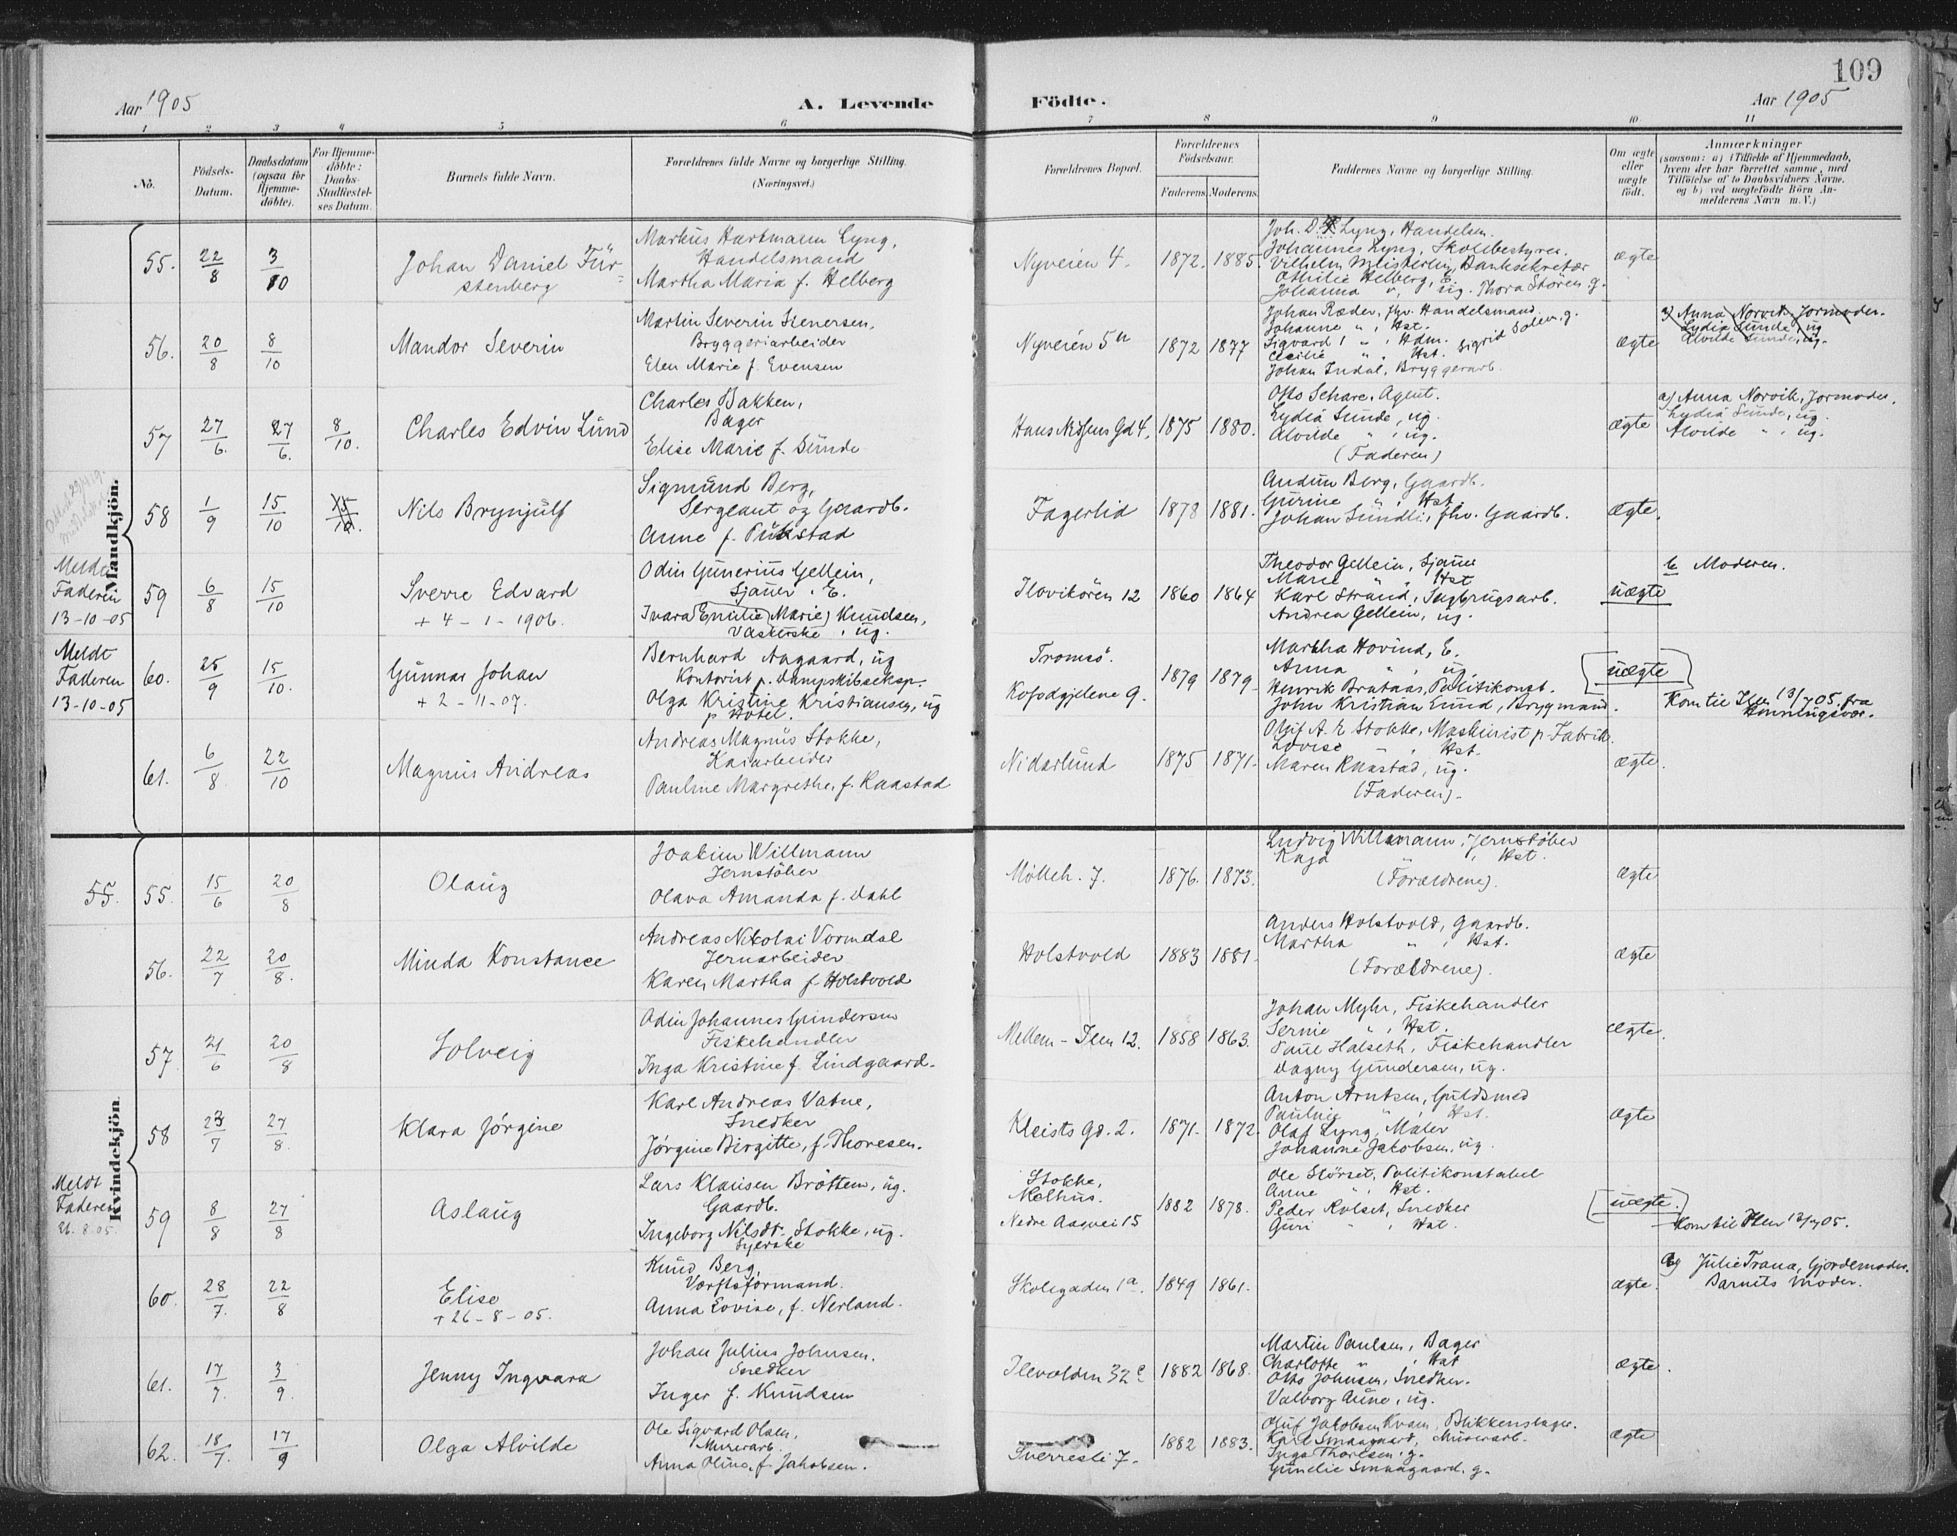 109
Aar 1905
A. Levende
Födte.
Aar 1905
1 2 3 4 5 6 7 8 9 10 11
No.
Födsels-
Datum.
Daabsdatum
(ogsaa for
Hjemme-
döbte).
For Hjemme-
döbte:
Daabs-
Stadfæstel-
ses Datum.
Barnets fulde Navn.
Forældrenes fulde Navne og borgerlige Stilling.
(Næringsvei.)
Forældrenes Bopæl.
Forældrenes
Födselsaar.
Faderens. Moderens.
Faddernes Navne og borgerlige Stilling.
Om ægte
eller
uægte
födt.
Anmærkninger
(saasom: a) i Tilfælde af Hjemmedaab,
hvem der har forrettet samme, med
Tilföielse af to Daabsvidners Navne,
og b) ved uægtefödte Börn An-
melderens Navn m. V.)
Mandkjön.
55. 22/8 3/10
Johan Daniel Für-
stenberg
Markus Hartmann Lyng,
Handelsmand
Martha Maria f. Helberg
Nyveien 4. 1872. 1885.
Joh. D. F. Lyng, Handelsm.
Johannes Lyng, Skolebestyrer
Vilhelm Meisterlin, Banksekretær
Othilie Helberg, E.
Johanna " , ug. Thora Stören g.
ægte
56. 20/8 8/10
Mandor Severin
Martin Severin Stenersen,
Bryggeriarbeider
Elen Marie f. Evensen
Nyveien 5 1872 1877
Johan Ræder, fhv. Handelsmand
Johanne " , Hst.
Sigvard " , Hdm. Sigrid Solem. g.
Cecilie " , Hst.
Johan Indal, Bryggerarb.
ægte
a) Anna Norvik, Jormoder.
Lydia Sunde, ug
Alvilde Sunde, ug.
57 27/6. 27/6. 8/10.
Charles Edvin Lund
Charles Bakken,
Bager
Elise Marie f. Sunde
Hans Nissens Gd 4, 1875 1880.
Otto Schare, Agent.
Lydia Sunde, ug.
Alvilde " , ug.
(Faderen)
ægte
a) Anna Norvik, Jormoder,
Lydia Sunde, ug.
Alvilde " , ug.
58 1/9 15/10
Nils Brynjulf
Sigmund Berg,
Sergeant og Gaardb.
Anne f. Pukstad
Fagerlid 1878 1881.
Audun Berg, Gaardb.
Gurine " , Hst.
Johan Sundli, fhv. Gaardb.
ægte.
Meldt
Faderen
13-10-05
59 6/8 15/10
Sverre Edvard
+ 4 - 1 - 1906.
Odin Gunerius Gellein,
Sjauer, E.
Ivara Emilie (Marie) Knudsen,
Vaskerske, ug.
Ilevikören 12 1860 1864
Theodor Gellein, Sjauer
Marie " , Hst
Karl Strand, Tugbrugsarb.
Andrea Gellein, ug.
uægte
b Moderen.
Meldt
Faderen
13-10-05
60. 25/9 15/10.
Gunnar Johan
+ 2 - 11 - 07.
Bernhard Aagaard, ug
Kontorist p. Dampskibseksp.
Olga Kristine Kristiansen, ug
p Hotel.
Tromsö.
Kofodgjelene 9. 1879 1879.
Martha Hovind, E.
Anna " , ug.
Henrik Brataas, Politikonst.
John Kristian Lund, Brygmand.
uægte
Kom til Ilen 13/7 05 fra
Honningsvær.
61. 6/8. 22/10
Magnus Andreas
Andreas Magnus Stokke,
Kaiarbeider
Pauline Margrethe f. Raastad
Nidarlund 1875 1871.
Oluf A. E Stokke, Maskinist p. Fabrik.
Lovise " , Hst.
Maren Raastad, ug.
(Faderen).
ægte.
Kvindekjön
55. 55. 15/6 20/8
Olaug
Joakim Willmann
Jernstöber
Olava Amanda f. Dahl
Mölleb. 7. 1876. 1873.
Ludvig Willmann, Jernstöber
Kaja " , Hst.
(Forældrene).
ægte
56. 22/7 20/8.
Minda Konstance
Andreas Nikolai Vormdal
Jernarbeider
Karen Martha f. Holstvold
Holstvold 1883 1881.
Anders Holstvold, Gaardb.
Martha " , Hst.
(Forældrene).
ægte
57 21/6 20/8
Solveig
Odin Johannes Gundersen
Fiskehandler
Inga Kristine f. Lindgaard.
Mellem-Ilen 12. 1858 1863.
Johan Myhr, Fiskehandler
Serine " , Hst.
Paul Halseth, Fiskehandler
Dagny Gundersen, ug.
ægte.
58 23/7 27/8.
Klara Jörgine
Karl Andreas Vatne,
Snedker
Jörgine Birgitte, f. Thoresen.
Kleists Gd. 2. 1871. 1872
Anton Arntsen, Guldsmed
Pauline " , Hst.
Olaf Lyng, Maler
Johanne Jakobsen, ug.
ægte
Meldt
Faderen
21.8.05.
59 8/8 27/8
Aslaug
Lars Klausen Bröttem, ug.
Gaardb.
Ingeborg Nilsdt. Stokke, ug.
Syerske
Stokke,
Melhus.
Nedre Aagvei 15 1882 1878.
Ole Störset, Politikonstabel
Anne " , Hst.
Peder Rolset, Snedker
Guri " , Hst.
uægte.
Kom til Ilen 12/7 05.
60. 28/7. 22/8
Elise
+ 26 - 8 - 05.
Knud Berg,
Værftsformand.
Anna Lovise, f. Nerland.
Skolegaden 1a. 1849 1861.
ægte.
a) Julie Trana, Gjordemoder.
Barnets Moder.
61. 17/7. 3/9.
Jenny Ingvara
Johan Julius Johnsen.
Snedker
Inger f. Knudsen
Ilevolden 32c 1882 1868.
Martin Paulsen, Bager
Charlotte " , Hst
Otto Johnsen, Snedker.
Valborg Aune, ug.
ægte.
62. 18/7. 17/9
Olga Alvilde
Ole Sigvard Olsen,
Murerarb.
Anna Oline, f. Jakobsen.
Sverresli 7. 1882 1883.
Oluf Jakobsen Kvam, Blikkenslager.
Karl Smaagaard, Murerarb.
Inga Thoresen, g.
Gunelie Smaagaard, g.
ægte